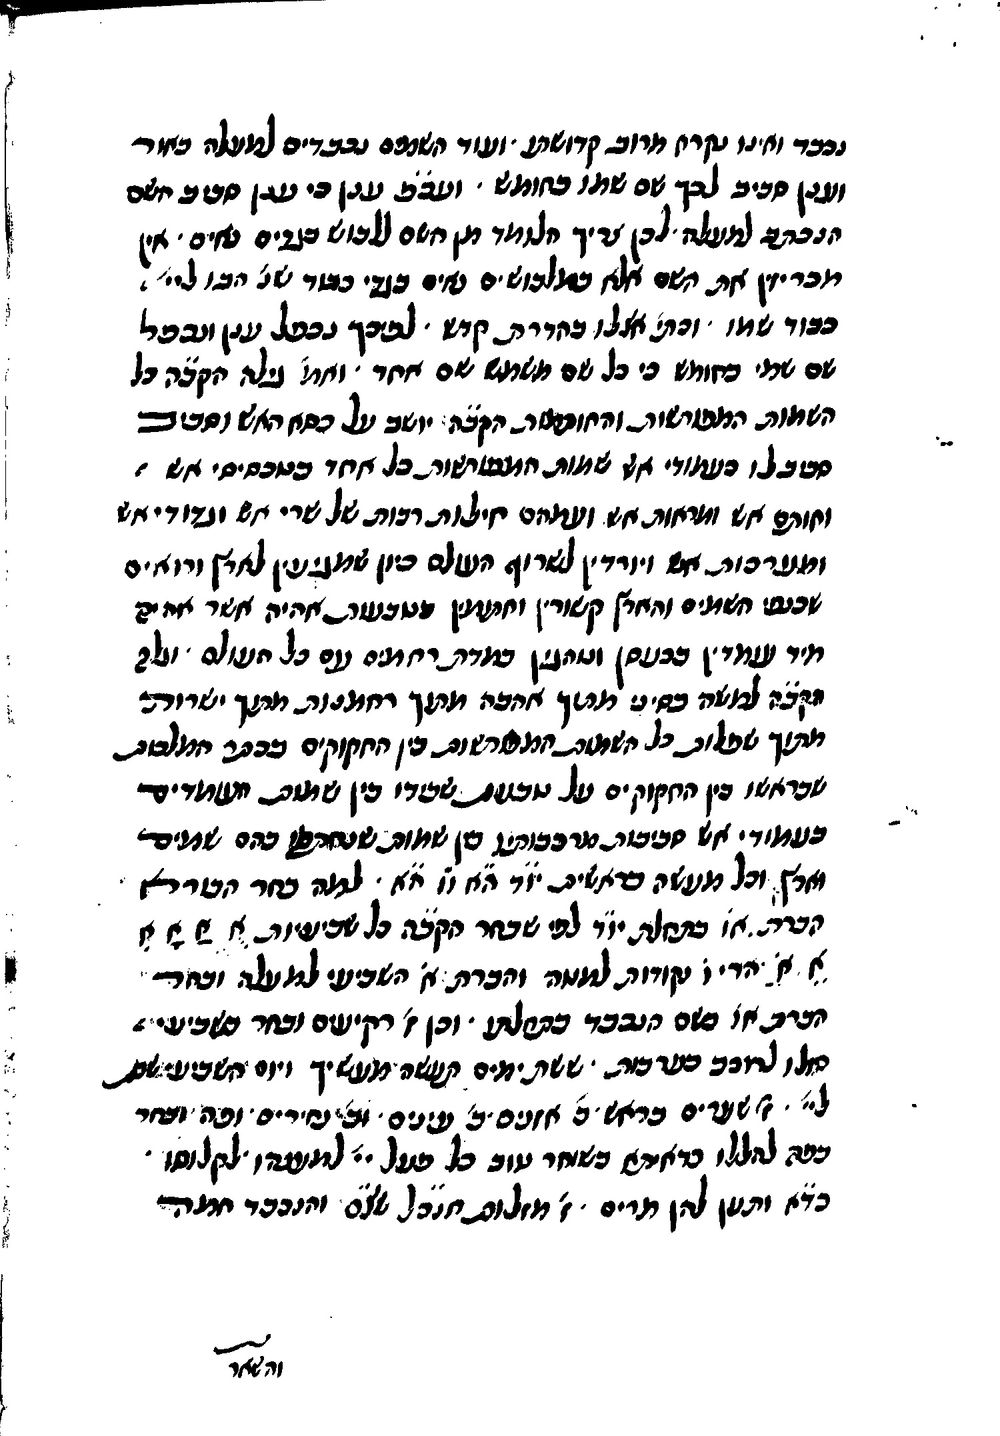 נכבד ואינו נקרא מרוב קדושתו · ועוד השמות נכבדים למעלה כאור
וענן סביב לכך שם שמו בחומש · וע״ב ענן כי ענן סביב השם
הנכתב למעלה · לכן צריך הלומד מן השם ללבוש בגדים נאים · אין
מבריזין את השם אלא במלבושים נאים בגדי כבוד שנ׳ הבו ליי׳
כבוד שמו · וכתי׳ אצלו בהדרת קדש · לפיכך נכפל ענן ונכפל
שם שמי בחומש כי כל שם משמש שם אחד · ואחר גילה הקב״ה כל
השמות המפורשות והחותמות הקב״ה יושב על כסא האש וסביב
סביב לו כעמודי אש שמות המפורשות כל אחד מכסים אש
וחותם אש ומראות אש ועמהם חילות רבות של שרי אש וגדודי אש
ומערכות אש ויורדין לשרוף העולם כיון שמגיעין לארץ ורואים
שכנפי השמים והארץ קשורין וחתומין בטבעות אהיה אשר אהיה
מיד עומדין בכעסן ונוהגין במדת רחמים עם כל העולם · וגלה
הקב״ה למשה בסיני מתוך אהבה מתוך רחמנות מתוך ישרות
מתוך שפלות כל השמות המפורשות בין החקוקים בכתר המלכות
שבראשו בין החקוקים על טבעת שבידו בין שמות העומדים
כעמודי אש סביבות מרכבותיו בין שמות שנחתם בהם שמים
וארץ וכל מעשה בראשית יו״ד ה״א ו״ו ה״א · למה בחר הבורא
הברת או בתחלת יו״ד לפי שבחר הקב״ה כל שביעיות אַ אֵ אָ אִ
אֶ אְ הרי ו׳ נקודות למטה והברת א׳ השביעי למעלה ובחר
הברת או בשם הנכבד בתחלתו · וכן ז׳ רקיעים ובחר בשביעי
סולו לרוכב בערבות · ששת ימים תעשה מעשיך ויום השביעי שבת
ליי׳ · ז׳ שערים בראש ב׳ אזנים ב׳ עינים · וב׳ נחירים · ופה · ובחר
בפה להללו כדאיתא כל פעל יי׳ למענהו לקלוסו ·
כד״א ותען להן מרים · ז׳ מזלות חנכ״ל שצ״ם והנכבד חמה
והשאר